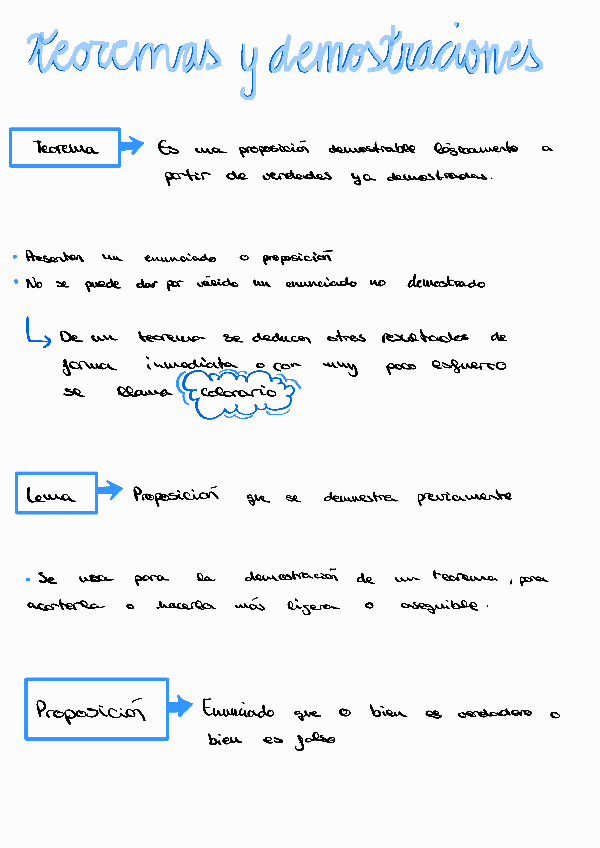 teoremas y demostraciones
Teorema Es una proposición demostrable lógicamente a
partir de verdades ya demostradas.
• Presentan un enunciado o proposición
• No se puede dar por válido un enunciado no demostrado
De un teorema se deducen otros resultados de
forma inmediata o con muy poco esfuerzo
se llama colorario
Lema Proposición que se demuestra previamente
• Se usa para la demostración de un teorema, para
acortarla o hacerla más ligera o asequible.
Proposición Enunciado que o bien es verdadero o
bien es falso